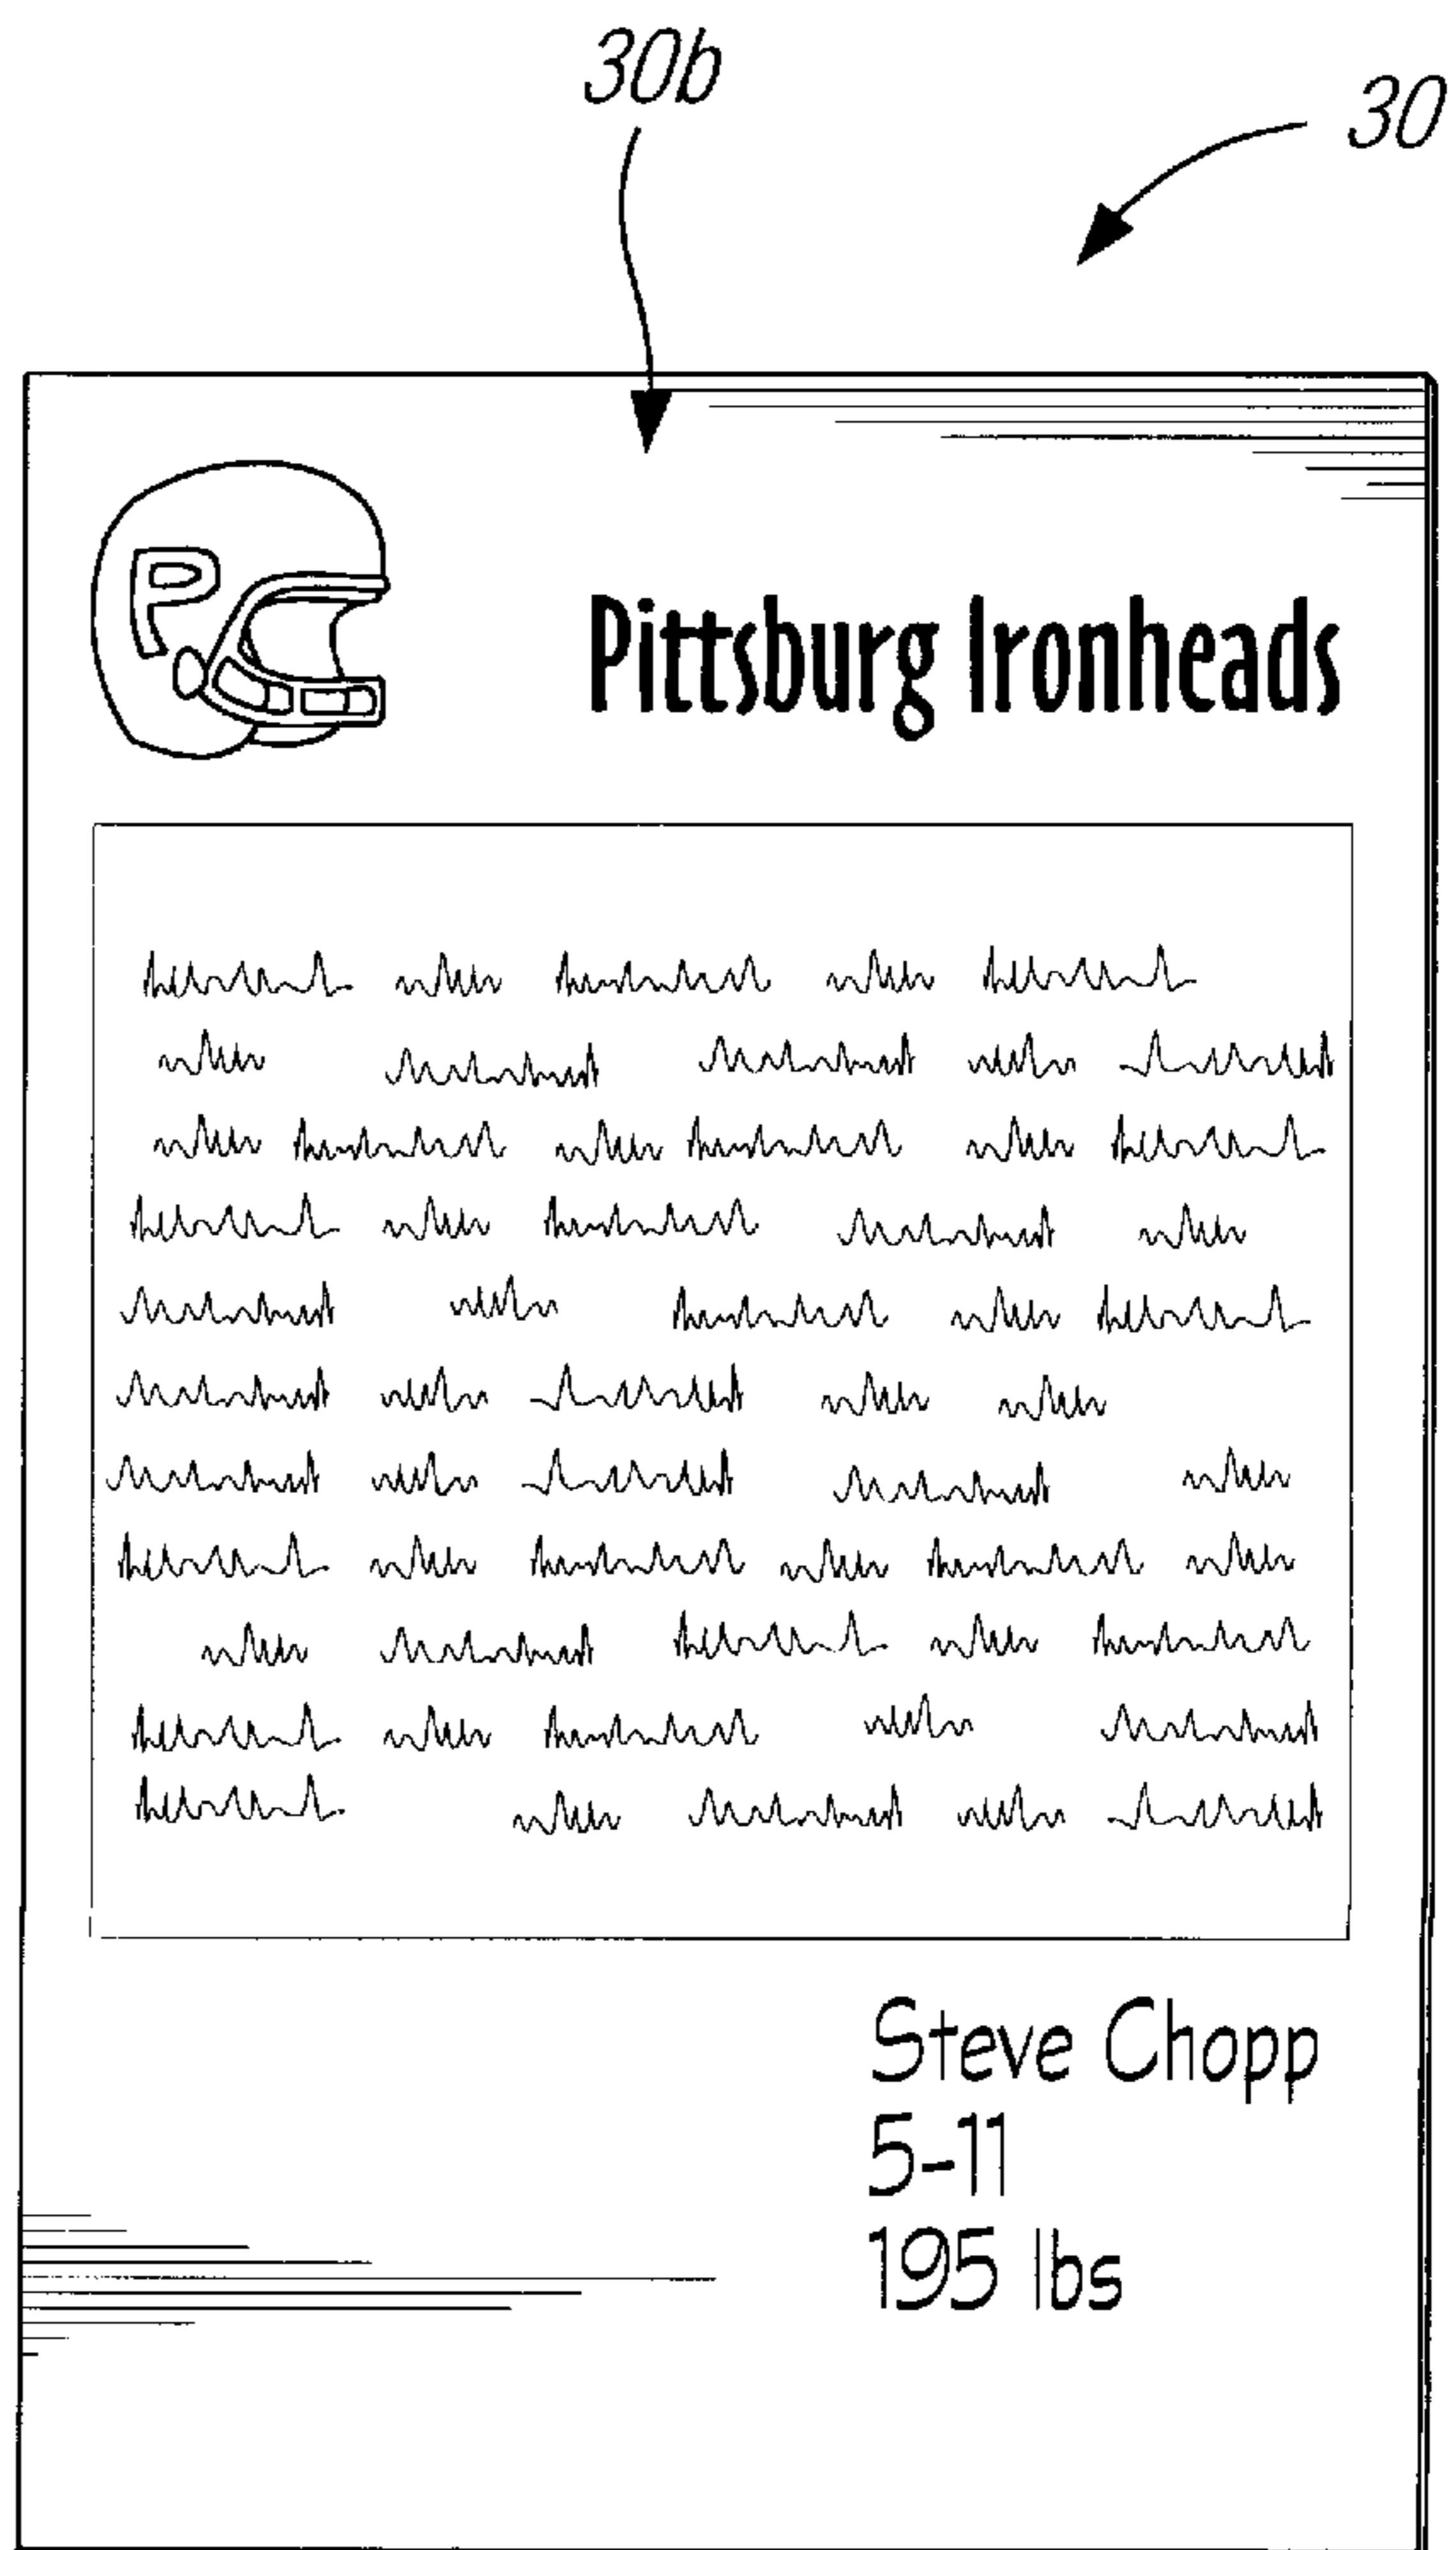 30b
30
P
Pittsburg Ironheads
Steve Chopp
5-11
195 lbs